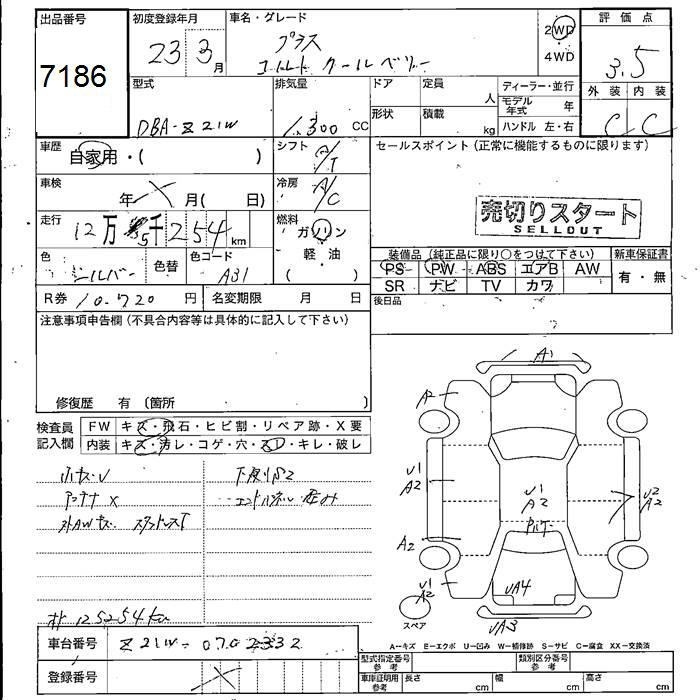 出品番号
7186
初度登録年月
23 3月
車名・グレード
プラス
コルト クールベリー
2WD
4WD
評価点
3.5
外装 内装
C C
型式
DBA-Z21W
排気量
1,300 cc
ドア
形状
定員
人
積載
kg
ディーラー・並行
モデル年式 年
ハンドル 左・右
車歴
自家用・( )
シフト
A/T
車検
年 月( 日)
冷房
A/C
走行
12万5千254km
燃料
ガソリン
軽油
( )
色
シルバー
色替
色コード
A31
R券 10.720円
名変期限 月 日
セールスポイント(正常に機能するものに限ります)
売切りスタート
SELLOUT
装備品(純正品に限り○をつけて下さい)
PS PW ABS エアB AW
SR ナビ TV カワ
新車保証書
有・無
後日品
注意事項申告欄(不具合内容等は具体的に記入して下さい)
修復歴 有(箇所 )
検査員記入欄
FW キズ・飛石・ヒビ割・リペア跡・X要
内装 キズ・汚レ・コゲ・穴・スレ・キレ・破レ
小キズ・U
アンテナ X
下廻りS2
エンドパネル歪み
オド 125254km
A1
A2
U1
A2
A2
U1
A2
U1
A2
U2
A2
UA4
UA3
スペア
A-キズ E-エクボ U-凹み W-補修跡 S-サビ C-腐食 XX-交換済
車台番号 Z21W-0702332
登録番号
型式指定番号参考
類別区分番号参考
車庫証明用参考 長さ cm 幅 cm 高さ cm